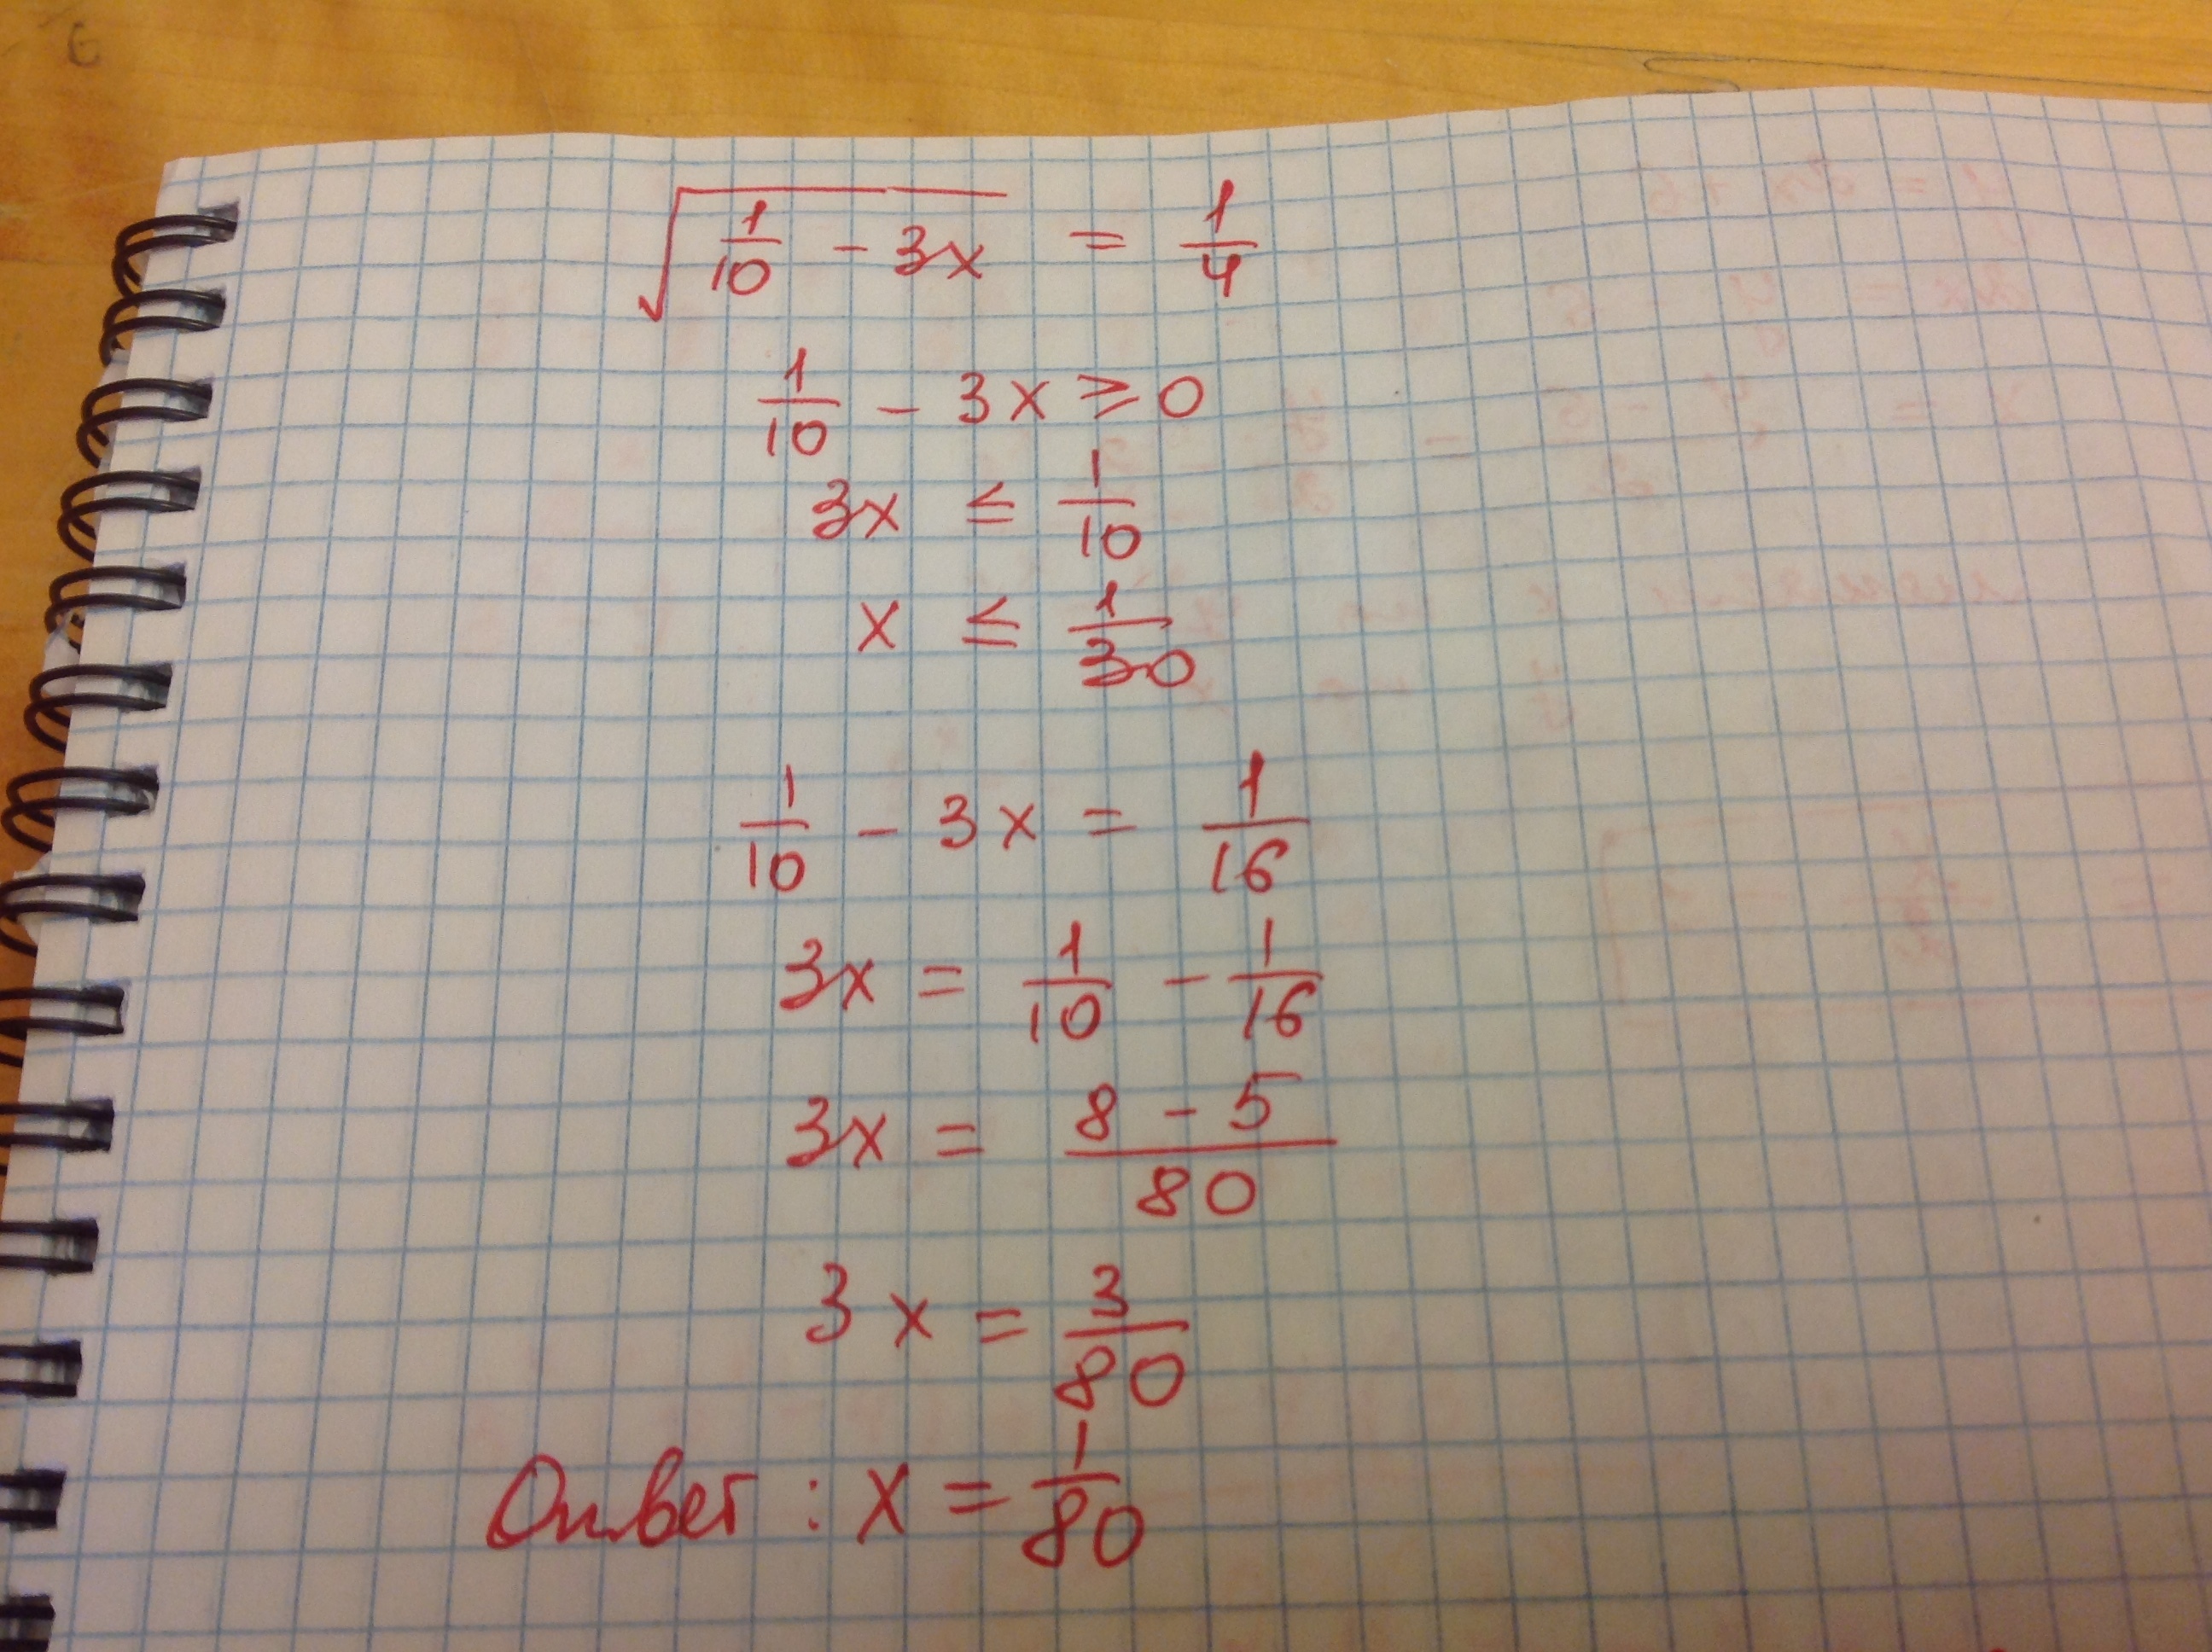 √(1/10 - 3x) = 1/4
1/10 - 3x ≥ 0
3x ≤ 1/10
x ≤ 1/30
1/10 - 3x = 1/16
3x = 1/10 - 1/16
3x = (8 - 5)/80
3x = 3/80
Ответ: x = 1/80